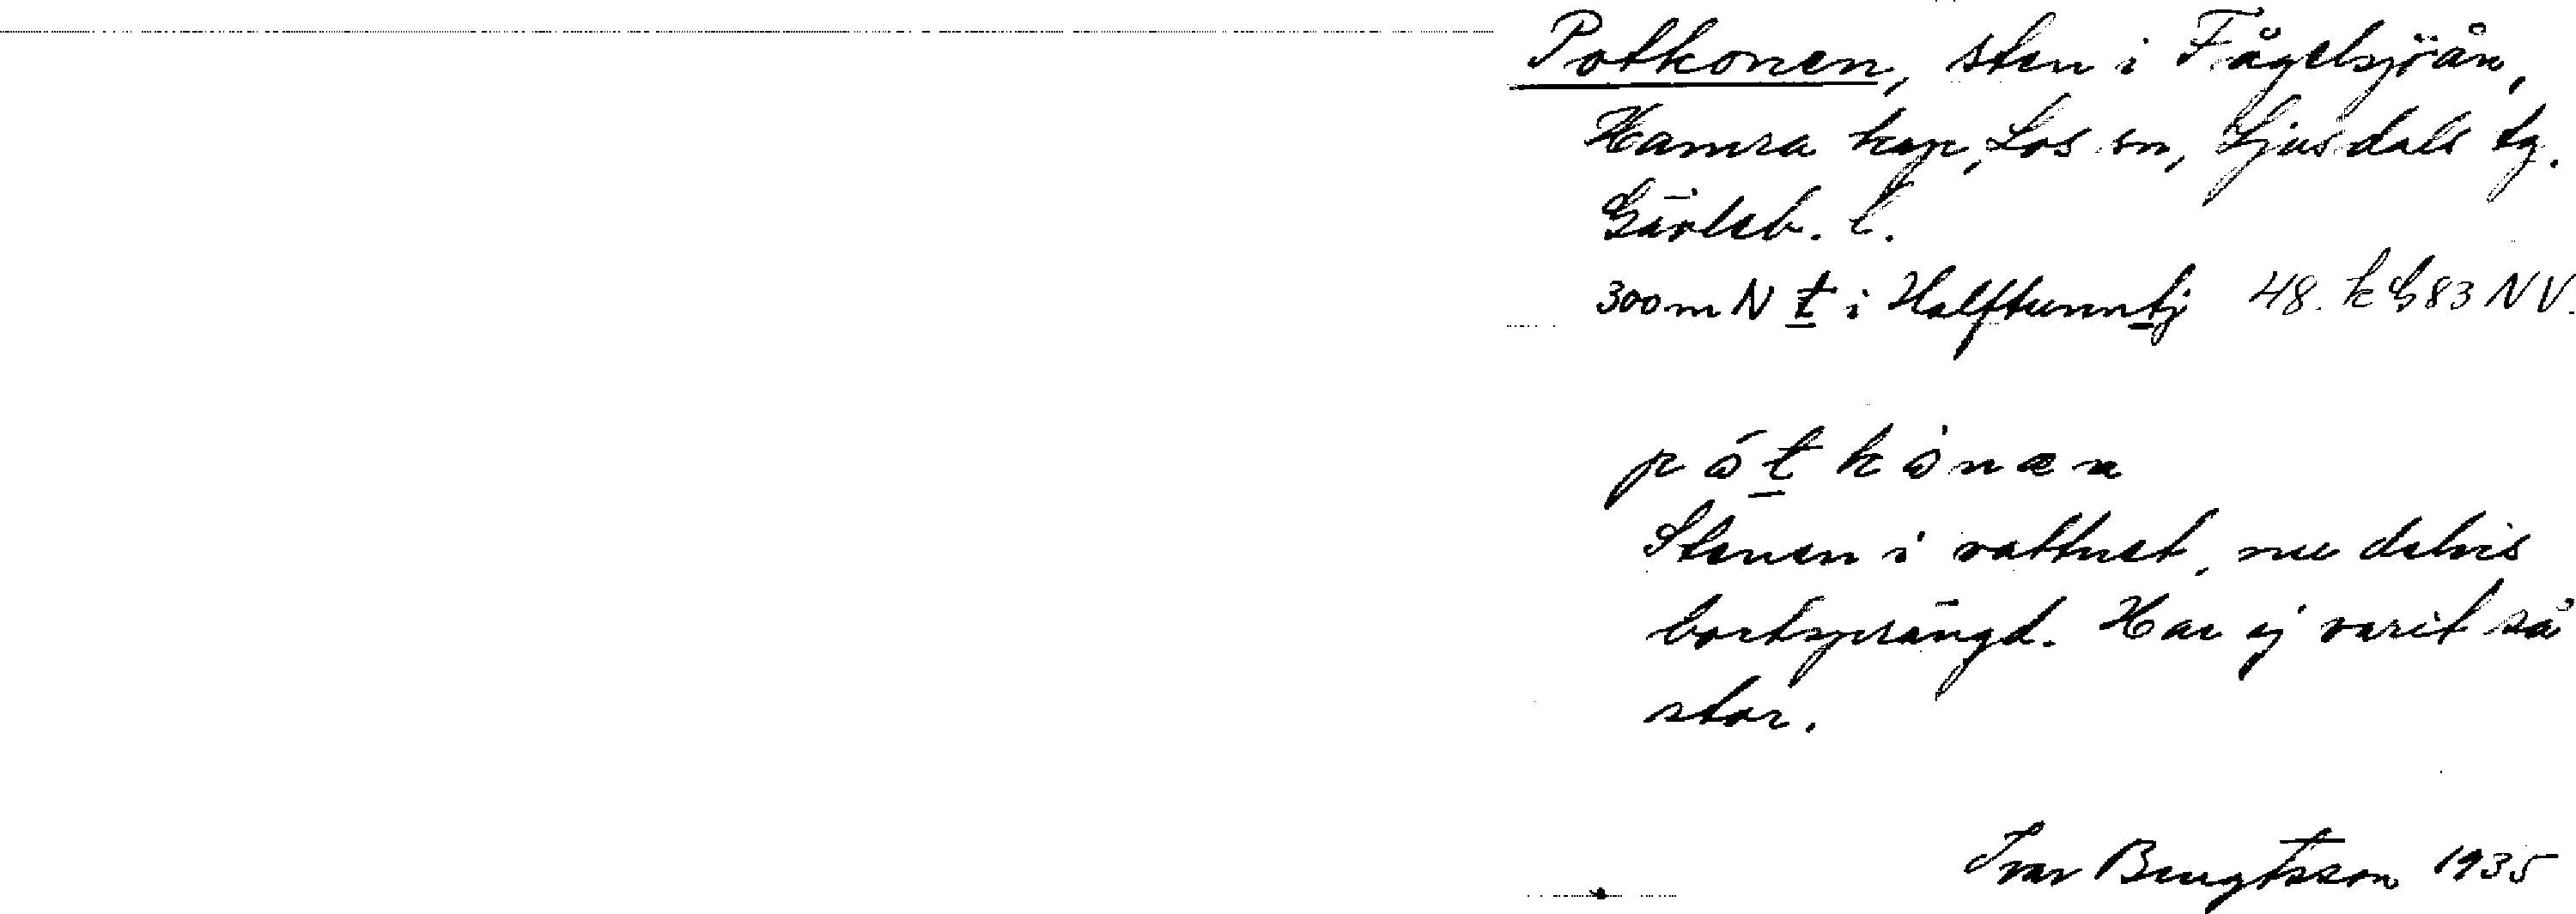 Potkonen, sten i Fågelsjöån,
Hamra kap, Los sn, Ljusdals tg.
Gävleb. l.
300 m N t i Halftunntj 48. k G 83 NV.
pòt kònæn
Stenen i vattnet, nu delvis
bortsprängd. Har ej varit så
stor.
Ivar Bengtsson 1935